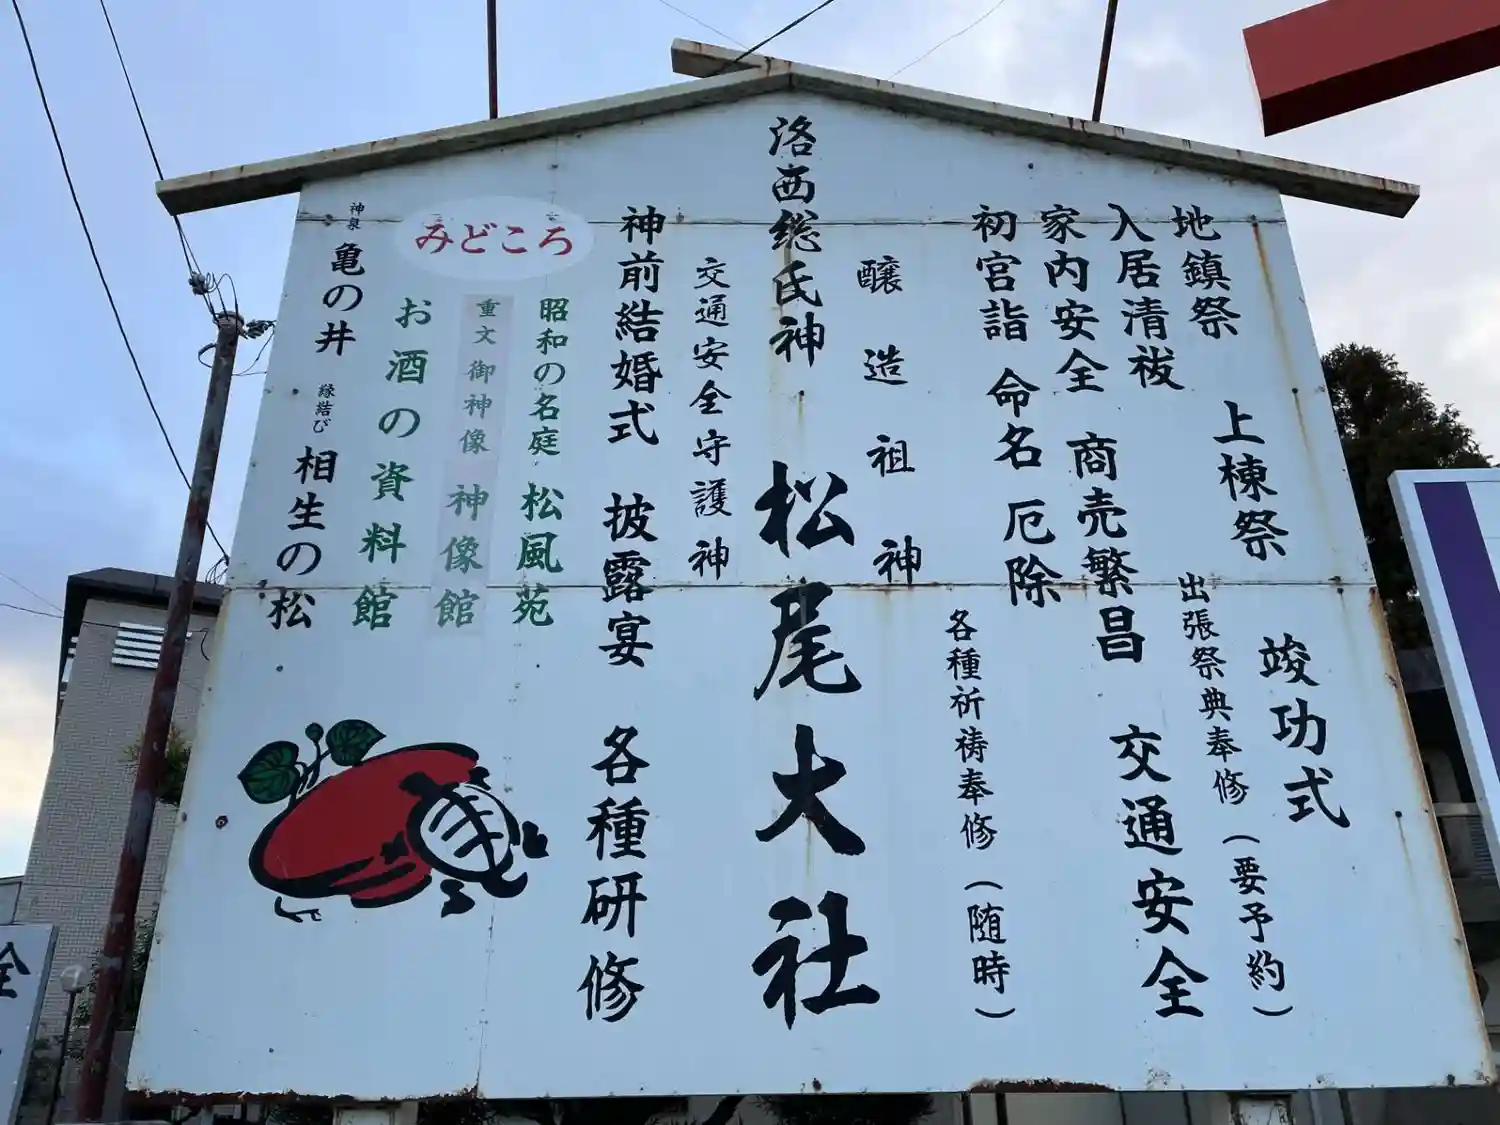 地鎮祭 上棟祭 竣功式
出張祭典奉修(要予約)
入居清祓
家内安全 商売繁昌 交通安全
初宮詣 命名 厄除
各種祈祷奉修(随時)
醸造祖神
洛西総氏神
松尾大社
交通安全守護神
神前結婚式 披露宴 各種研修
みどころ
昭和の名庭 松風苑
重文御神像 神像館
お酒の資料館
神泉 亀の井 縁結び 相生の松
全